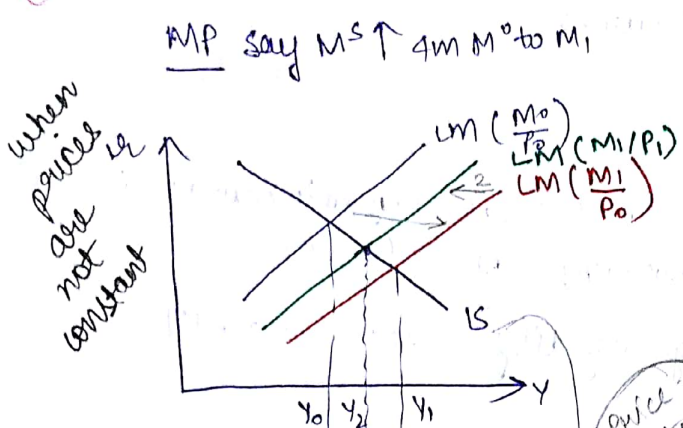 MP say Mˢ ↑ 4m M⁰ to M₁
when prices are not constant
r
LM (M₀/P₀)
LM (M₁/P₁)
LM (M₁/P₀)
1
2
IS
Y
Y₀ Y₂ Y₁
price